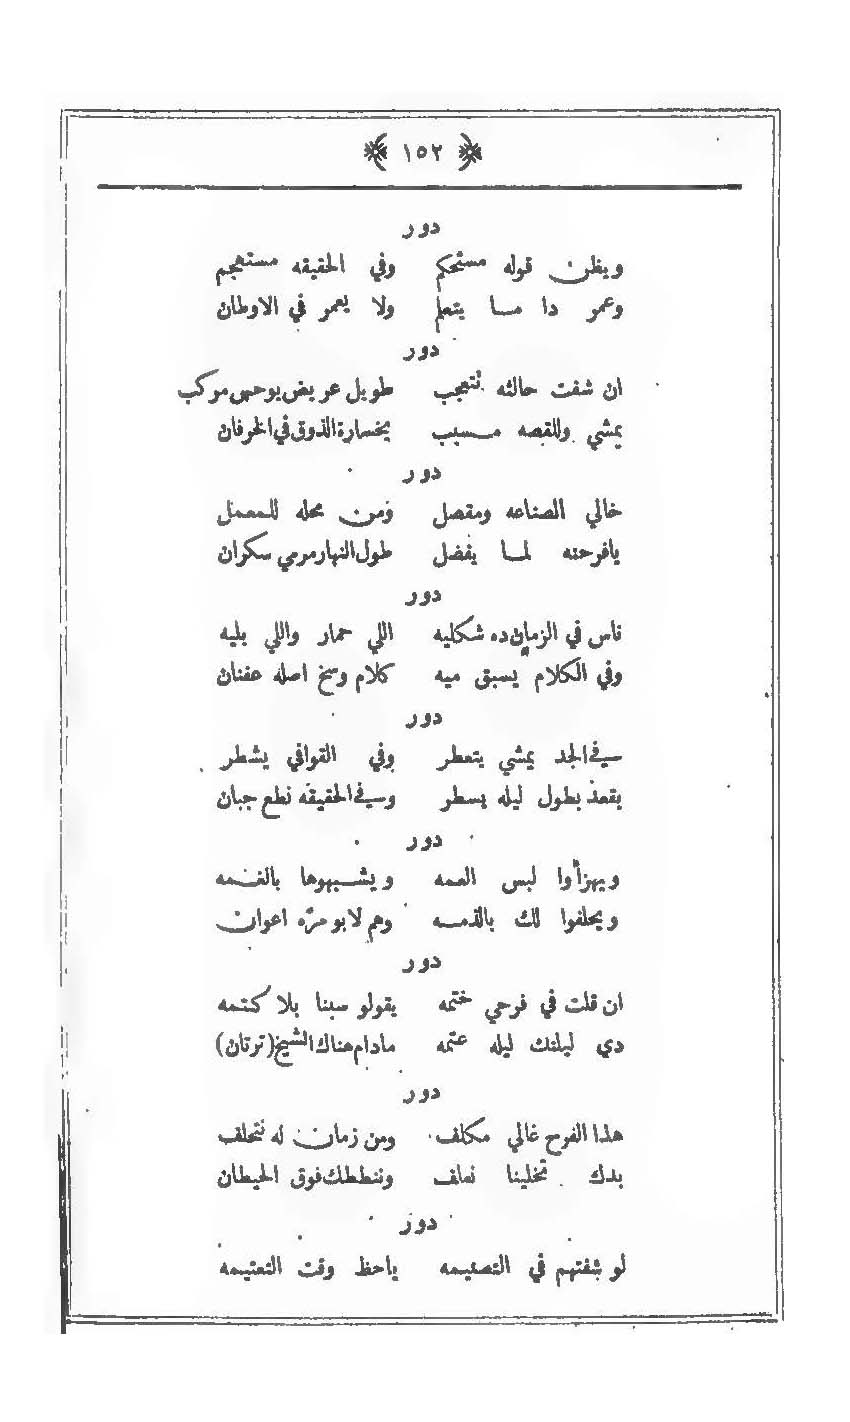 ١٥٢
دور
ويظن قوله مستحكم وفي الحقيقه مستهجم
وعمر دا ما يتعلم ولا يعمر في الاوطان
دور
ان شفت حالثه تتعجب طويل عريض يوحمى موكب
يمشي وللقصه مسبب بخسارة الذوق في الخرفان
دور
خالي الصناعه ومقصل ومن محله للمعمل
يافرحته لما يفضل طول النهار مرمي سكران
دور
ناس في الزمان ده شكليه اللي حمار واللي بليه
وفي الكلام يسبق ميه كلام وسخ اصله عفنان
دور
في الجد يمشي يتعطر وفي القوافي يشطر
يقعد بطول ليله يسطر وفي الحقيقه نطع جبان
دور
ويهزأوا لبس العمه ويشبهوها بالغمه
ويحلفوا لك بالذمه وهم لابو مرّه اعوان
دور
ان قلت في فرحي ختمه يقولو سبنا بلا كتمه
دي ليلتك ليله عتمه مادام هناك الشيخ (ترتان)
دور
هذا الفرح غالي مكلف ومن زمان له نتحلف
بدك تخلينا نملف وننططك فوق الحيطان
دور
لو شفتهم في التصئيمه ياحظ وقت التعتيمه